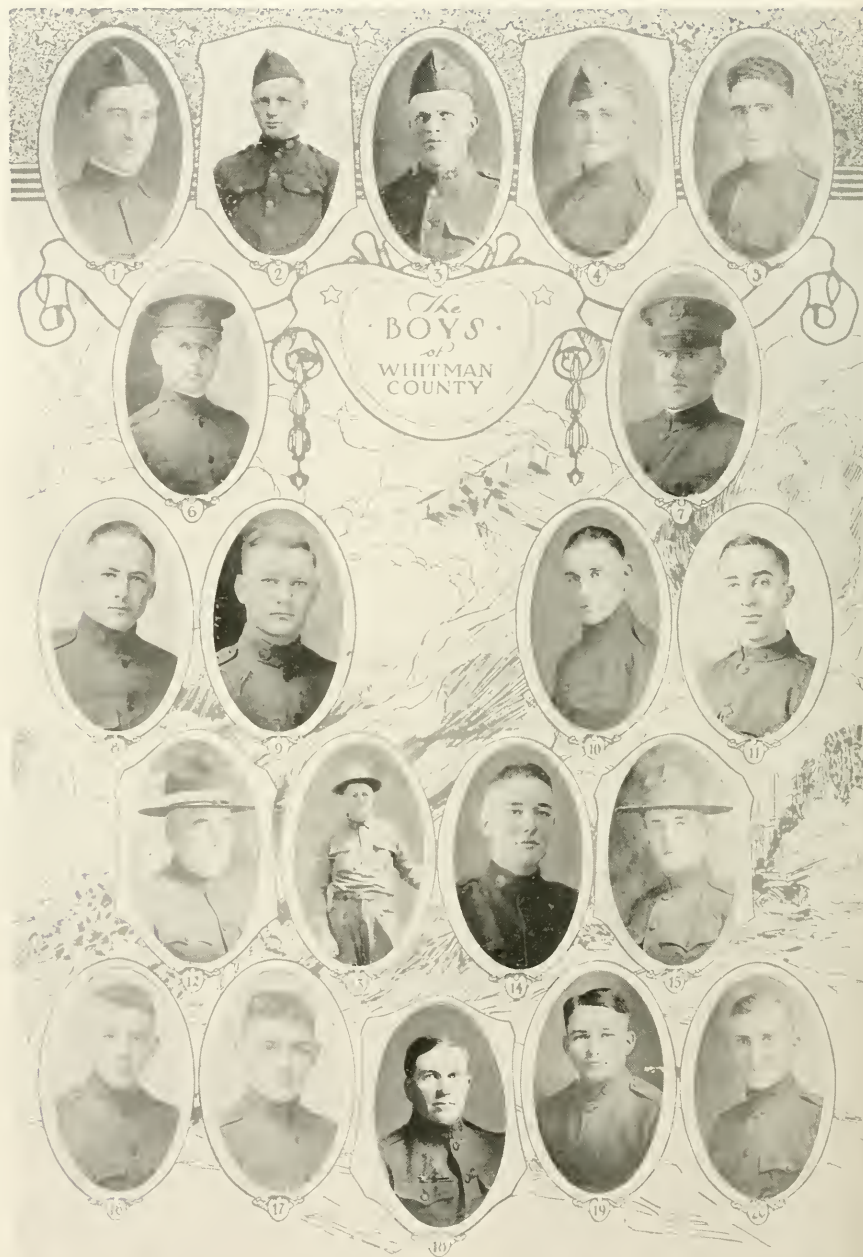 1
2
3
4
5
The
· BOYS ·
of
WHITMAN
COUNTY
6
7
8
9
10
11
12
13
14
15
16
17
18
19
20